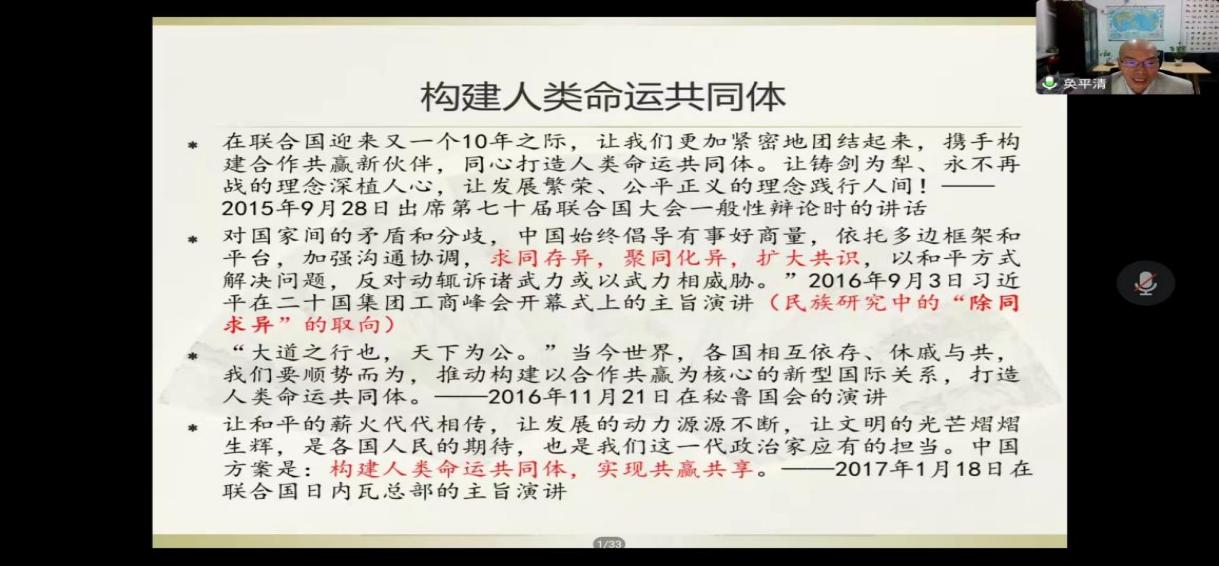 构建人类命运共同体
* 在联合国迎来又一个10年之际，让我们更加紧密地团结起来，携手构
建合作共赢新伙伴，同心打造人类命运共同体。让铸剑为犁、永不再
战的理念深植人心，让发展繁荣、公平正义的理念践行人间！——
2015年9月28日出席第七十届联合国大会一般性辩论时的讲话
* 对国家间的矛盾和分歧，中国始终倡导有事好商量，依托多边框架和
平台，加强沟通协调，求同存异，聚同化异，扩大共识，以和平方式
解决问题，反对动辄诉诸武力或以武力相威胁。”2016年9月3日习近
平在二十国集团工商峰会开幕式上的主旨演讲（民族研究中的“除同
求异”的取向）
* “大道之行也，天下为公。”当今世界，各国相互依存、休戚与共，
我们要顺势而为，推动构建以合作共赢为核心的新型国际关系，打造
人类命运共同体。——2016年11月21日在秘鲁国会的演讲
* 让和平的薪火代代相传，让发展的动力源源不断，让文明的光芒熠熠
生辉，是各国人民的期待，也是我们这一代政治家应有的担当。中国
方案是：构建人类命运共同体，实现共赢共享。——2017年1月18日在
联合国日内瓦总部的主旨演讲
1/33
奂平清